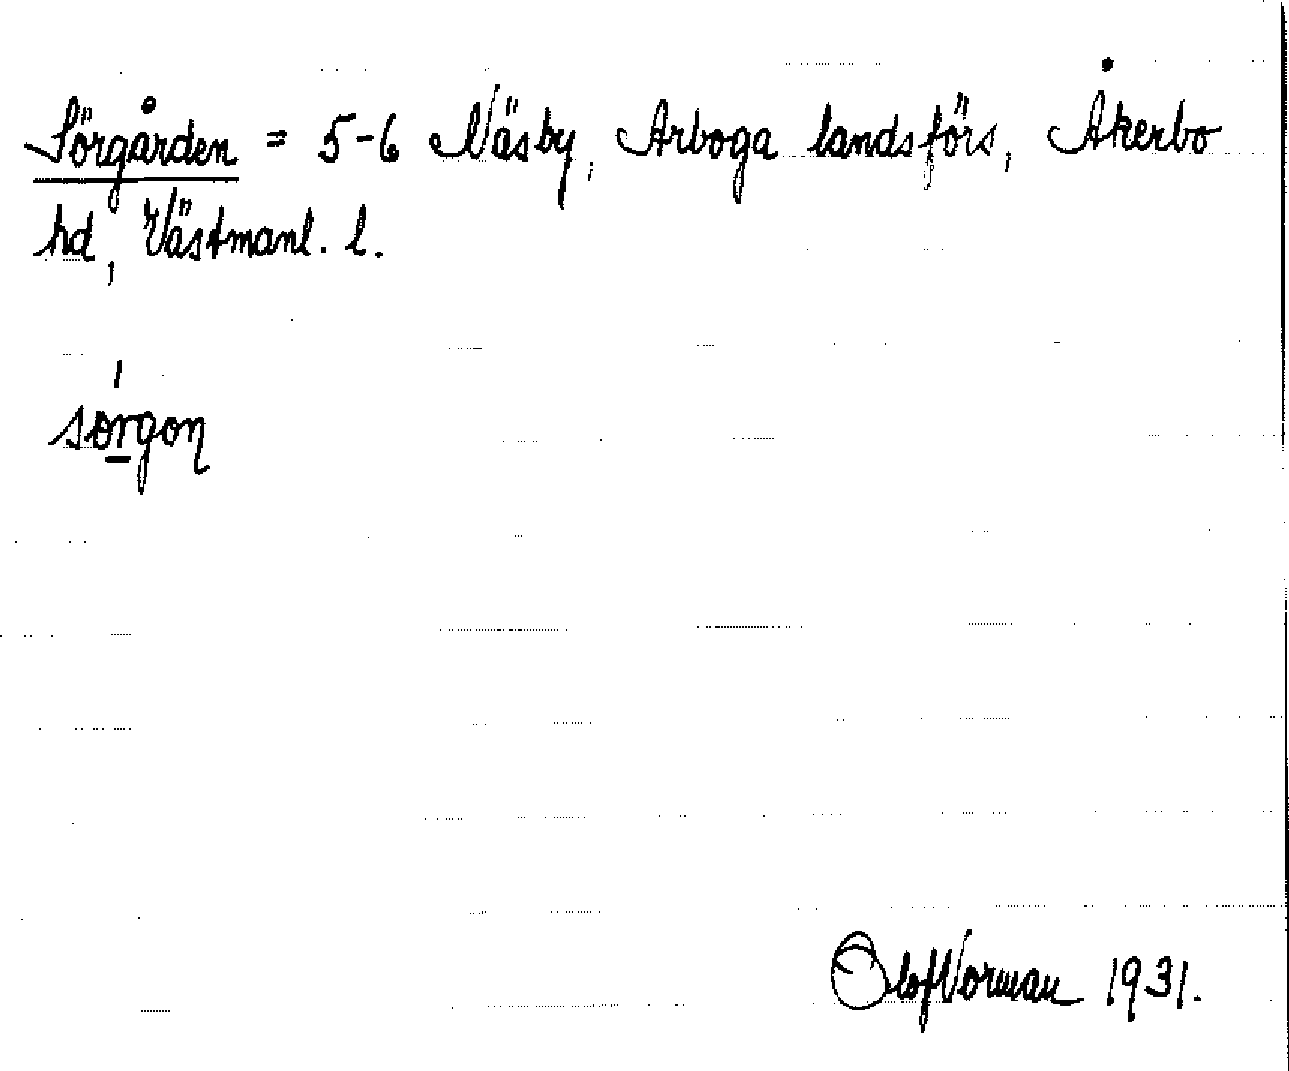 Sörgården = 5-6 Näsby, Arboga landsförs, Åkerbo
hd, Västmanl. l.
sorgoɳ
Olof Norman 1931.